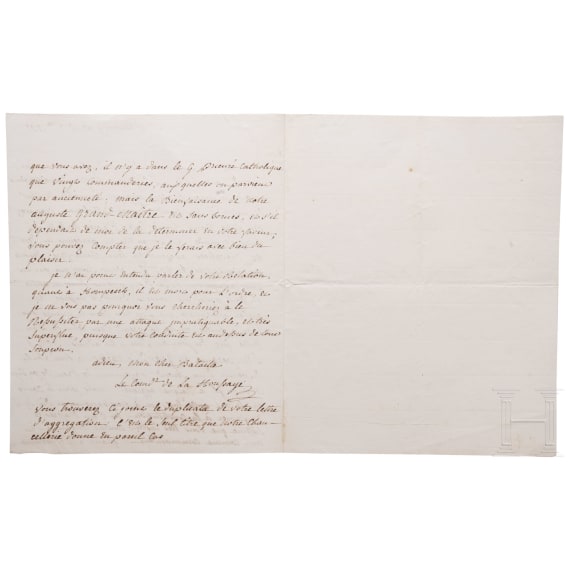 que vous avez, il n'y a dans le g. Prieuré Catholique
que vingt commanderies, auxquelles on parvien
par ancienneté; mais la Bienfaisance de notre
auguste Grand-Maitre est sans bornes, et s'il
dependait de moi de la determiner en votre faveur,
vous pouvez compter que je le ferais avec bien du
plaisir.
je n'ai point entendu parler de votre Relation
quant à Hompesch, il est mort pour l'ordre, et
je ne vois pas pourquoi vous chercheriez à le
par une attaque impratiquable et très
superflue, puisque votre conduite est au dessus de tout
soupçon.
adieu, mon cher Bataille
Le Com.r de La Houssaye
Vous trouverez ci joint le duplicata de votre lettre
d'aggregation. C'est le seul titre que notre Chan-
cellerie donne en pareil cas
H